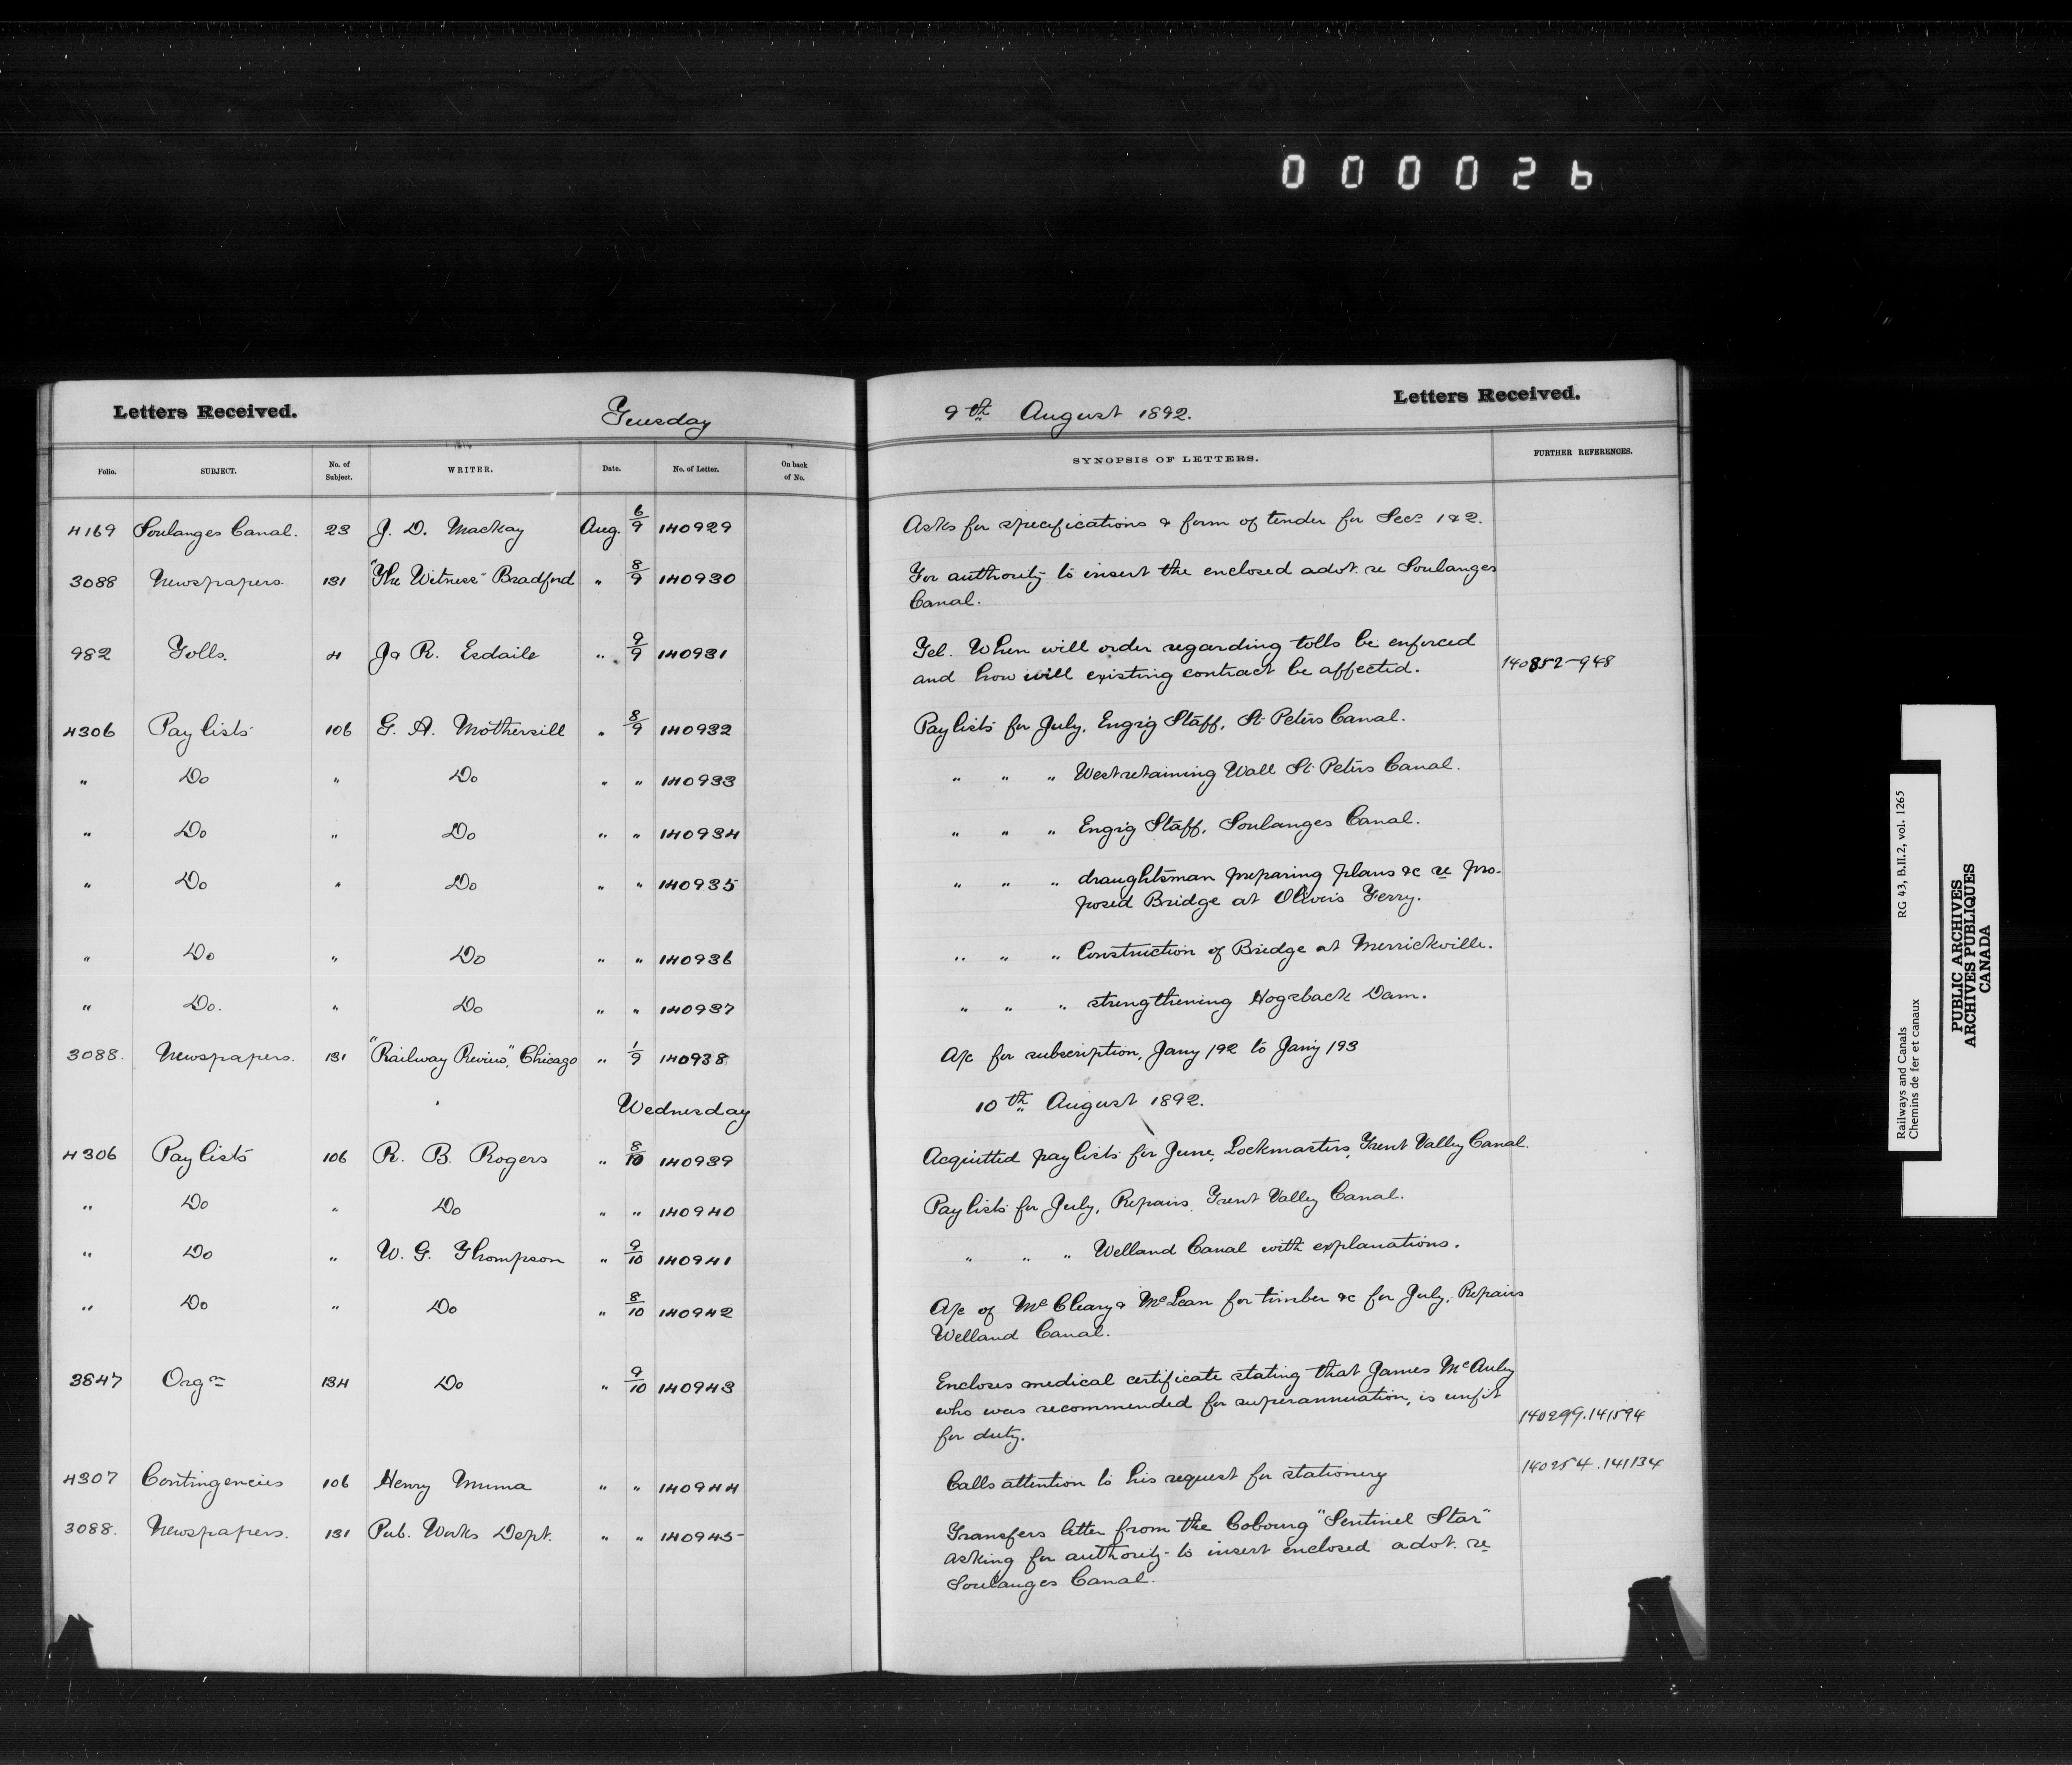 000026
Letters Received. Tuesday 9th August 1892. Letters Received.
Folio. SUBJECT. No. of Subject. WRITER. Date. No. of Letter. On back of No. SYNOPSIS OF LETTERS. FURTHER REFERENCES.
4169 Soulanges Canal. 23 J. D. Mackay Aug. 6/9 140929 Asks for specifications & form of tender for Secs 1 & 2.
3088 Newspapers. 131 "The Witness" Bradford " 8/9 140930 For authority to insert the enclosed advt. re Soulanges
Canal.
982 Tolls. 4 Ja R. Esdaile " 9/9 140931 Tel. When will order regarding tolls be enforced
and how will existing contract be affected. 140852-948
4306 Pay lists 106 G. A. Mothersill " 8/9 140932 Pay lists for July, Engig Staff, St Peters Canal.
" Do " Do " " 140933 " " " West retaining Wall St Peters Canal.
" Do " Do " " 140934 " " " Engig Staff, Soulanges Canal.
" Do " Do " " 140935 " " " draughtsman preparing plans &c re pro-
posed Bridge at Olivers Ferry.
" Do " Do " " 140936 " " " Construction of Bridge at Merrickville.
" Do. " Do " " 140937 " " " strengthening Hogsback Dam.
3088. Newspapers. 131 "Railway Review", Chicago " 1/9 140938 A/c for subscription, Jany /92 to Jany /93
Wednesday 10th August 1892.
4306 Pay lists 106 R. B. Rogers " 8/10 140939 Acquitted pay lists for June, Lockmasters, Trent Valley Canal.
" Do " Do " " 140940 Pay lists for July, Repairs, Trent Valley Canal.
" Do " W. G. Thompson " 9/10 140941 " " " Welland Canal with explanations.
" Do " Do " 8/10 140942 A/c of McCleary & McLean for timber &c for July, Repairs
Welland Canal.
3847 Orgn 134 Do " 9/10 140943 Encloses medical certificate stating that James McAuley
who was recommended for superannuation, is unfit
for duty. 140299.141594
4307 Contingencies 106 Henry Muma " " 140944 Calls attention to his request for stationery 140254.141134
3088. Newspapers. 131 Pub. Works Dept. " " 140945 Transfers letter from the Cobourg "Sentinel Star"
asking for authority to insert enclosed advt. re
Soulanges Canal.
Railways and Canals RG 43, B.II.2, vol. 1265
Chemins de fer et canaux
PUBLIC ARCHIVES
ARCHIVES PUBLIQUES
CANADA